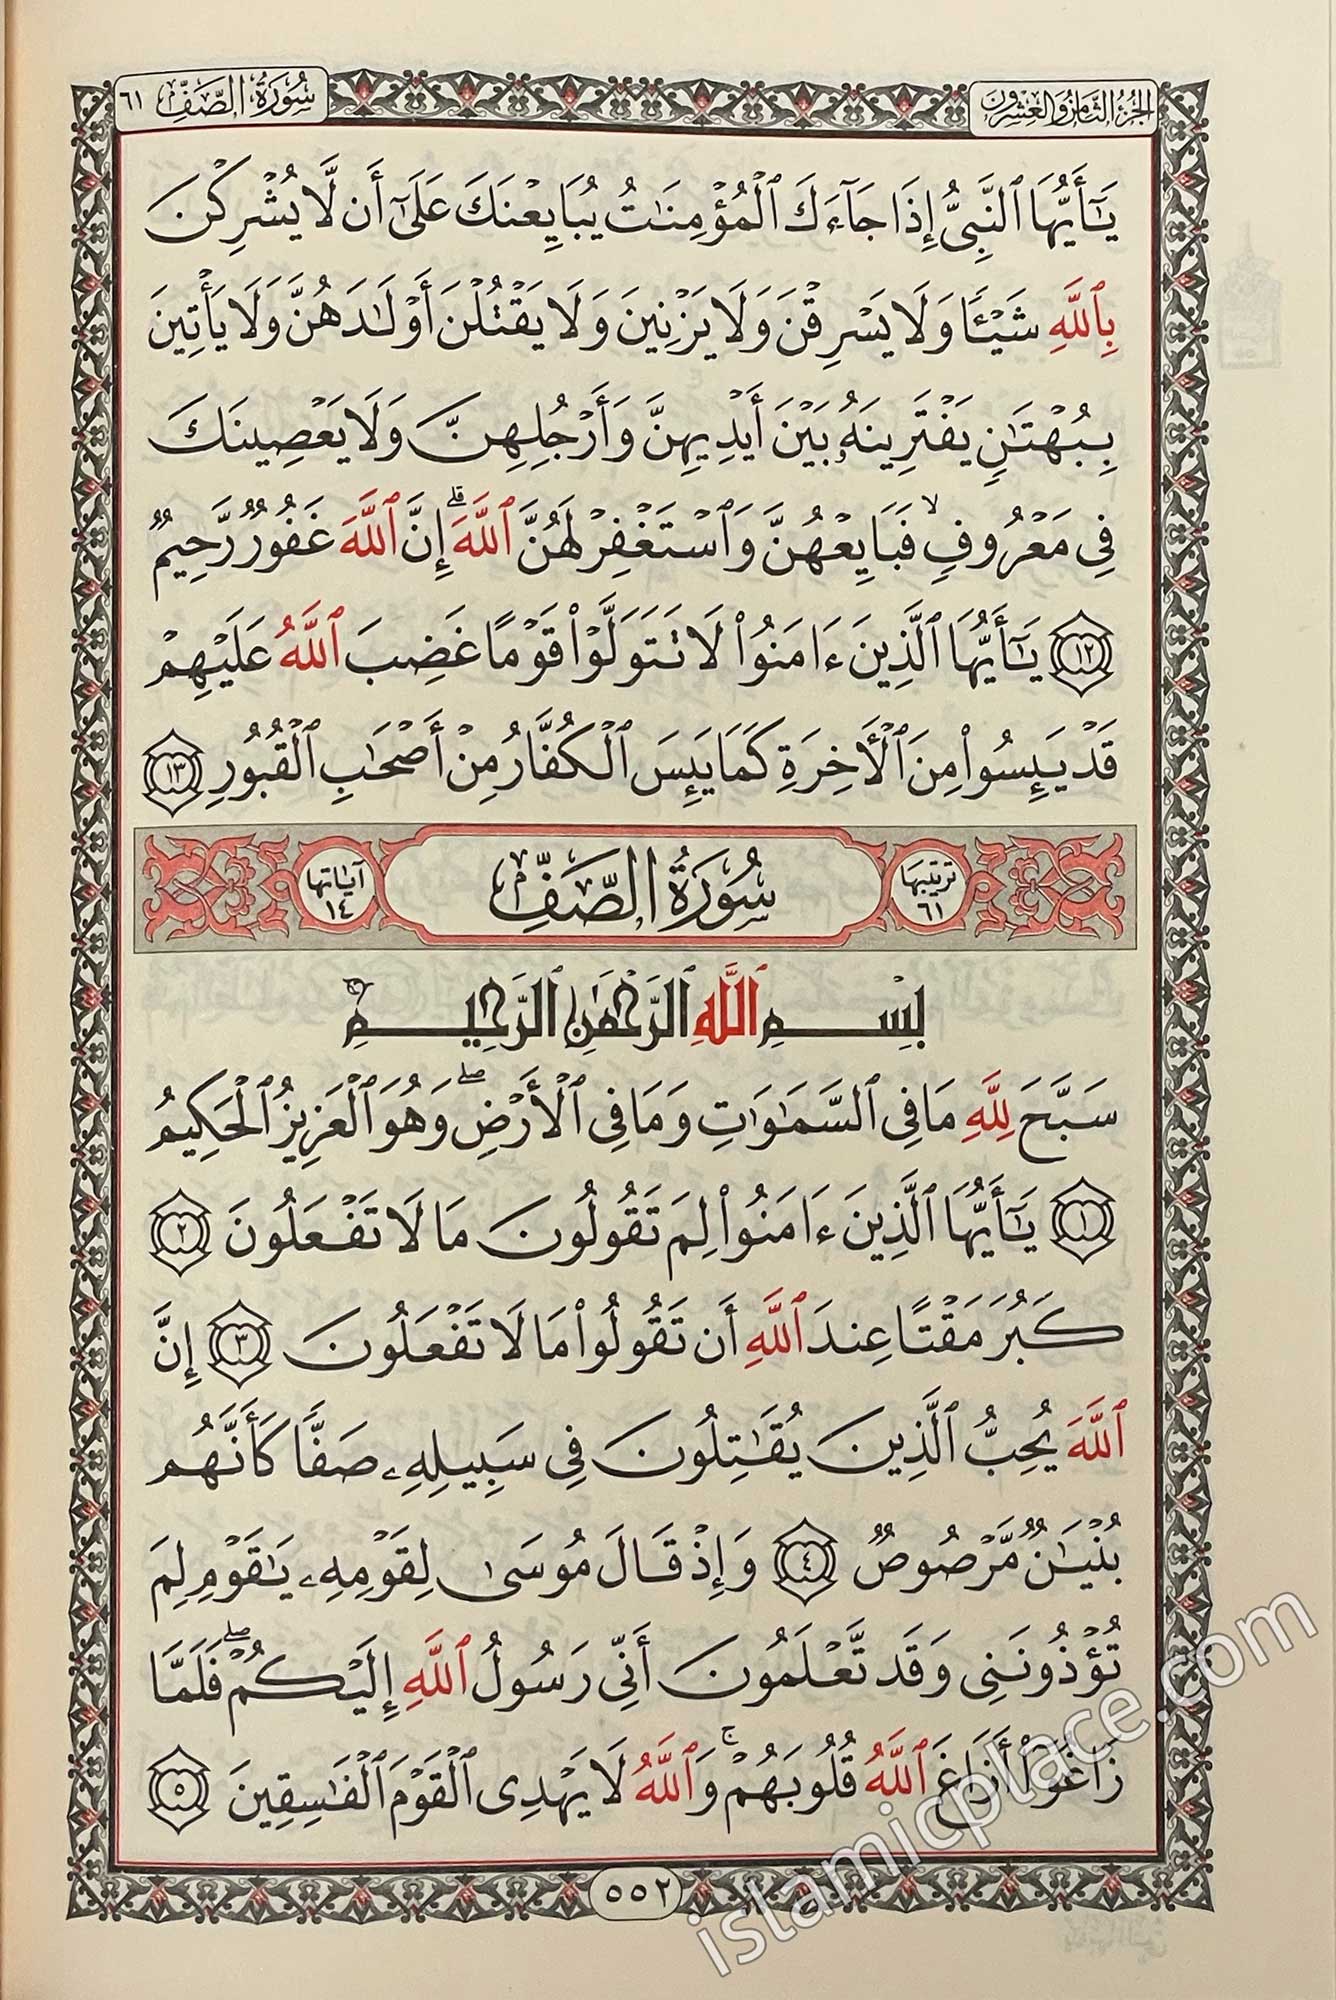 الجزء الثامن والعشرون
سورة الصف ٦١
يَـٰٓأَيُّهَا ٱلنَّبِىُّ إِذَا جَآءَكَ ٱلْمُؤْمِنَـٰتُ يُبَايِعْنَكَ عَلَىٰٓ أَن لَّا يُشْرِكْنَ
بِٱللَّهِ شَيْـًٔا وَلَا يَسْرِقْنَ وَلَا يَزْنِينَ وَلَا يَقْتُلْنَ أَوْلَـٰدَهُنَّ وَلَا يَأْتِينَ
بِبُهْتَـٰنٍ يَفْتَرِينَهُۥ بَيْنَ أَيْدِيهِنَّ وَأَرْجُلِهِنَّ وَلَا يَعْصِينَكَ
فِى مَعْرُوفٍ ۙ فَبَايِعْهُنَّ وَٱسْتَغْفِرْ لَهُنَّ ٱللَّهَ ۖ إِنَّ ٱللَّهَ غَفُورٌ رَّحِيمٌ
١٢ يَـٰٓأَيُّهَا ٱلَّذِينَ ءَامَنُوا۟ لَا تَتَوَلَّوْا۟ قَوْمًا غَضِبَ ٱللَّهُ عَلَيْهِمْ
قَدْ يَئِسُوا۟ مِنَ ٱلْـَٔاخِرَةِ كَمَا يَئِسَ ٱلْكُفَّارُ مِنْ أَصْحَـٰبِ ٱلْقُبُورِ ١٣
ترتيبها ٦١ سُورَةُ الصَّفِّ آياتها ١٤
بِسْمِ ٱللَّهِ ٱلرَّحْمَـٰنِ ٱلرَّحِيمِ
سَبَّحَ لِلَّهِ مَا فِى ٱلسَّمَـٰوَٰتِ وَمَا فِى ٱلْأَرْضِ ۖ وَهُوَ ٱلْعَزِيزُ ٱلْحَكِيمُ
١ يَـٰٓأَيُّهَا ٱلَّذِينَ ءَامَنُوا۟ لِمَ تَقُولُونَ مَا لَا تَفْعَلُونَ ٢
كَبُرَ مَقْتًا عِندَ ٱللَّهِ أَن تَقُولُوا۟ مَا لَا تَفْعَلُونَ ٣ إِنَّ
ٱللَّهَ يُحِبُّ ٱلَّذِينَ يُقَـٰتِلُونَ فِى سَبِيلِهِۦ صَفًّا كَأَنَّهُم
بُنْيَـٰنٌ مَّرْصُوصٌ ٤ وَإِذْ قَالَ مُوسَىٰ لِقَوْمِهِۦ يَـٰقَوْمِ لِمَ
تُؤْذُونَنِى وَقَد تَّعْلَمُونَ أَنِّى رَسُولُ ٱللَّهِ إِلَيْكُمْ ۖ فَلَمَّا
زَاغُوٓا۟ أَزَاغَ ٱللَّهُ قُلُوبَهُمْ ۚ وَٱللَّهُ لَا يَهْدِى ٱلْقَوْمَ ٱلْفَـٰسِقِينَ ٥
٥٥٢
islamicplace.com